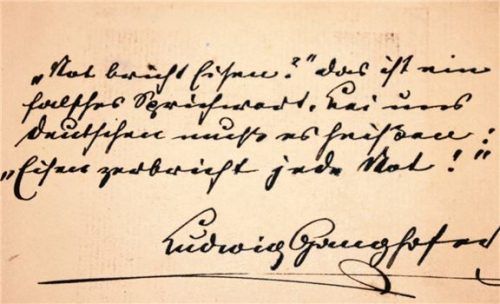 „Not bricht Eisen?" das ist ein
falsches Sprichwort. Bei uns
Deutschen muß es heißen:
„Eisen zerbricht jede Not!"
Ludwig Ganghofer